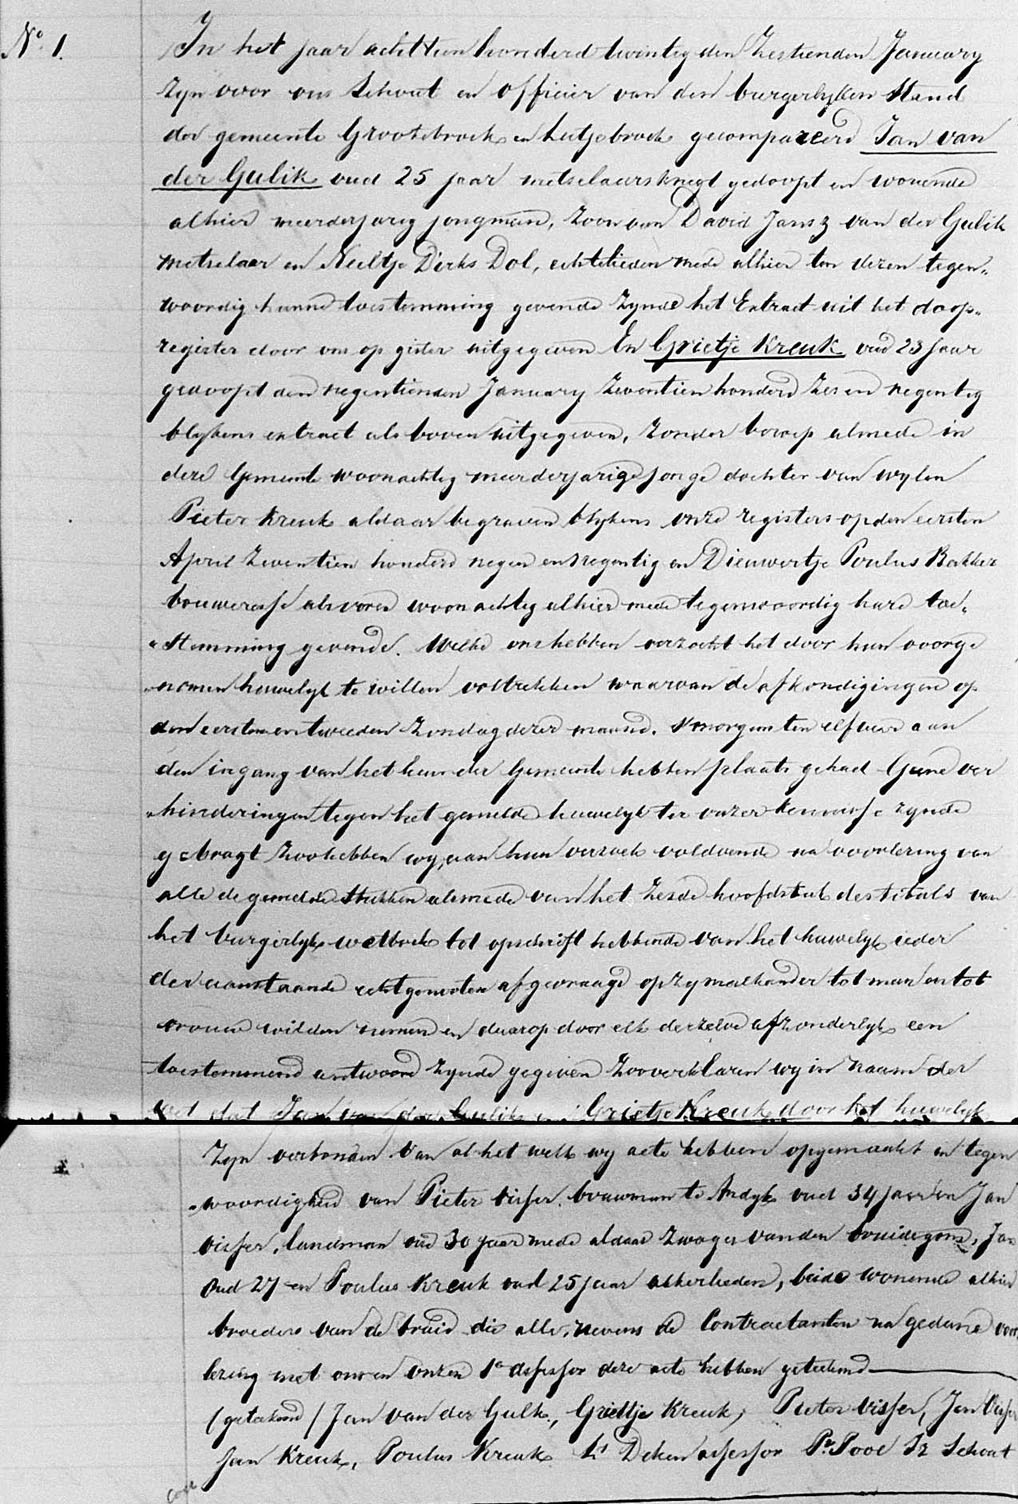 No. 1.
In het jaar achttien honderd twintig den Zestienden January
Zyn voor ons Schout en officier van den burgerlyken Stand
der gemeente Grootebroek en Lutjebroek gecompareerd Jan van
der Gulik oud 25 jaar metselaarsknegt gedoopt en wonende
alhier meerderjarig jongman, Zoon van David Jansz van der Gulik
metselaar en Neeltje Dirks Dol, echtelieden mede alhier ten dezen tegen„
woordig hunne toestemming gevende Zynde het Extract uit het doop„
register door ons op gister uitgegeven En Grietje Kreuk oud 23 Jaar
gedoopt den negentienden January Zeventien honderd Zes en negentig
blykens extract als boven uitgegeven, Zonder beroep almede in
deze Gemeente woonachtig meerderjarige jonge dochter van wylen
Pieter Kreuk aldaar begraven blykens onze registers op den eersten
April Zeventien honderd negen en negentig en Dieuwertje Poulus Bakker
bouweresse als voren woonachtig alhier mede tegenwoordig hare toe„
„Stemming gevende. Welke ons hebben verzocht het door hun voorge
„nomen huwelyk te willen voltrekken waarvan de afkondigingen op
den eersten en tweeden Zondag dezer maand, smorgens ten elf uur aan
den ingang van het huis der Gemeente hebben plaats gehad Geene ver
„hinderingen tegen het gemelde huwelyk ter onzer kennisse zynde
gebragt Zoo hebben wy, aan hun verzoek voldoende na voorlezing van
alle de gemelde Stukken alsmede van het Zesde hoofdstuk des titels van
het burgerlyk wetboek tot opschrift hebbende van het huwelyk ieder
der aanstaande echtgenoten afgevraagd op zy malkander tot man en tot
vrouw wilden nemen en daarop door elk derzelve afzonderlyk een
toestemmend antwoord Zynde gegeven Zoo verklaren wy in Naam der
wet dat Jan van der Gulik en Grietje Kreuk door het huwelyk
Zyn verbonden Van al het welk wy acte hebben opgemaakt in tegen
„woordigheid van Pieter Visser bouwman te Andyk oud 34 jaar en Jan
Visser, landman oud 30 jaar mede aldaar Zwager van den bruidegom, Jan
Oud 27 en Poulus Kreuk oud 25 Jaar akkerlieden, beide wonende alhier
broeders van de bruid die alle, nevens de Contractanten na gedane voor
lezing met ons en onzen 1e assessor deze acte hebben geteekend
(geteekend) Jan van der Gulk, Grietje Kreuk, Pieter Visser, Jan Visser
Jan Kreuk, Poulus Kreuk Deken assessor Pr. Pool Sz Schout